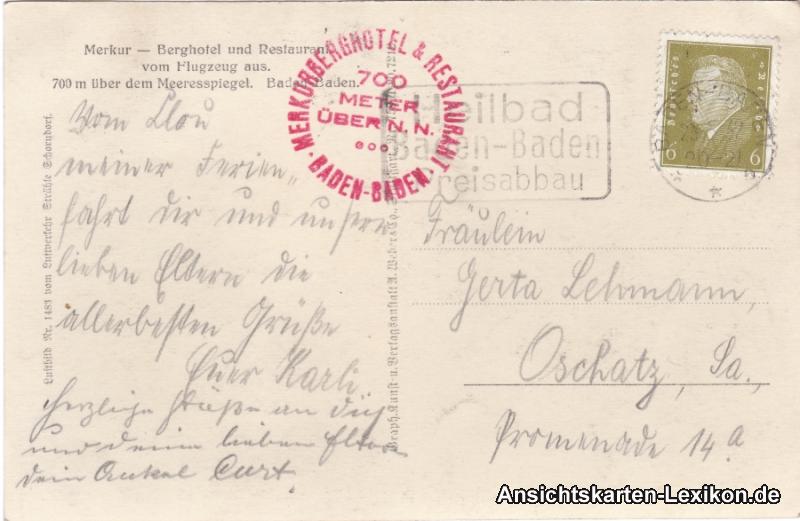 Merkur — Berghotel und Restaurant
vom Flugzeug aus.
700 m über dem Meeresspiegel. Baden-Baden.
MERKURBERGHOTEL & RESTAURANT
700
METER
ÜBER N. N.
BADEN-BADEN
Heilbad
Baden-Baden
Preisabbau
Deutsches Reich
6 6
Vom Clou
meiner Ferien-
fahrt dir und unsern
lieben Eltern die
allerbesten Grüße
Euer Karli
Herzliche Grüße an dich
und deine lieben Eltern
dein Onkel Curt
Fräulein
Gerta Lehmann,
Oschatz, Sa.,
Promenade 14 a
Luftbild Nr. 1481 vom Luftverkehr Strähle Schorndorf.
Graph. Kunst- u. Verlagsanstalt A. Weber & Co.,
Ansichtskarten-Lexikon.de